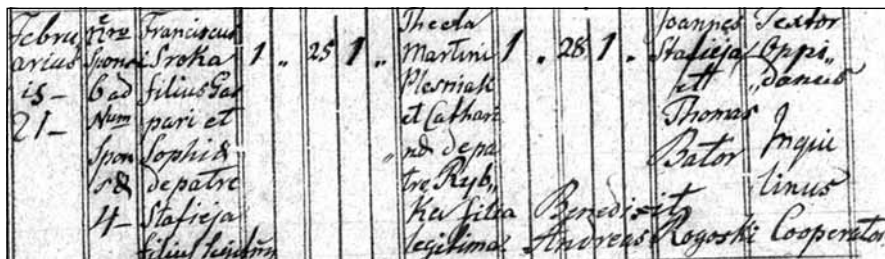 Febru
arius
is -
21 -
Nro
Sponsi
6 ad
Num
Spon
sæ
4 -
Franciscus
Sroka
filius Gas
pari et
Sophiæ
de patre
Stafieja
filius
1 „ 25 1 „
Thecla
Martini
Plesniak
et Cathari
næ de pa
tre Ryb„
ka filia
legitima
1 „ 28 1 „
Joannes
Stafieja
et
Thomas
Bator
Textor
Oppi„
„danus
Inqui
linus
Benedixit
Andreas Rogoski Cooperator